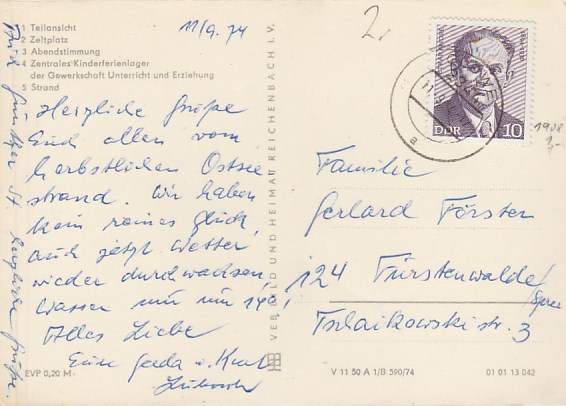 1 Teilansicht
2 Zeltplatz
3 Abendstimmung
4 Zentrales Kinderferienlager
der Gewerkschaft Unterricht und Erziehung
5 Strand
11/9. 74
Herzliche Grüße
Euch allen vom
herbstlichen Ostsee
strand. Wir haben
kein reines Glück,
auch jetzt Wetter
wieder durchwachsen,
Wasser nur nur 14°,
Alles Liebe
Eure Gerda u. Kurt
EVP 0,20 M
VERLAG BILD UND HEIMAT REICHENBACH I. V.
2.
DDR 10
11.9.
a
1908
Familie
Gerhard Förster
124 Fürstenwalde/Spree
Tschaikowskistr. 3
V 11 50 A 1/B 590/74
01 01 13 042